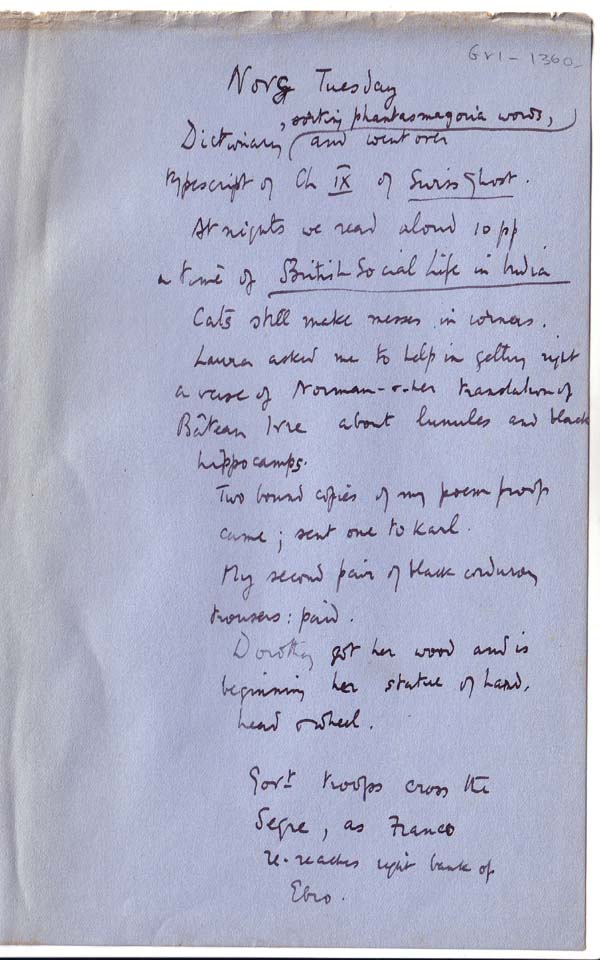 GV1 - 1360
Nov 8 Tuesday
, sorting phantasmagoria words,
Dictionary (and went over
typescript of Ch IX of Swiss Ghost.
At nights we read aloud 10 pp
a time of British Social Life in India
Cats still make messes in corners.
Laura asked me to help in getting right
a verse of Norman - & her translation of
Bâteau Ivre about lunules and black
hippocamps.
Two bound copies of my poem proofs
came; sent one to Karl.
My second pair of black corduroy
trousers: paid.
Dorothy got her wood and is
beginning her statue of hand,
head & wheel.
Govt troops cross the
Segre, as Franco
re-reaches right bank of
Ebro.